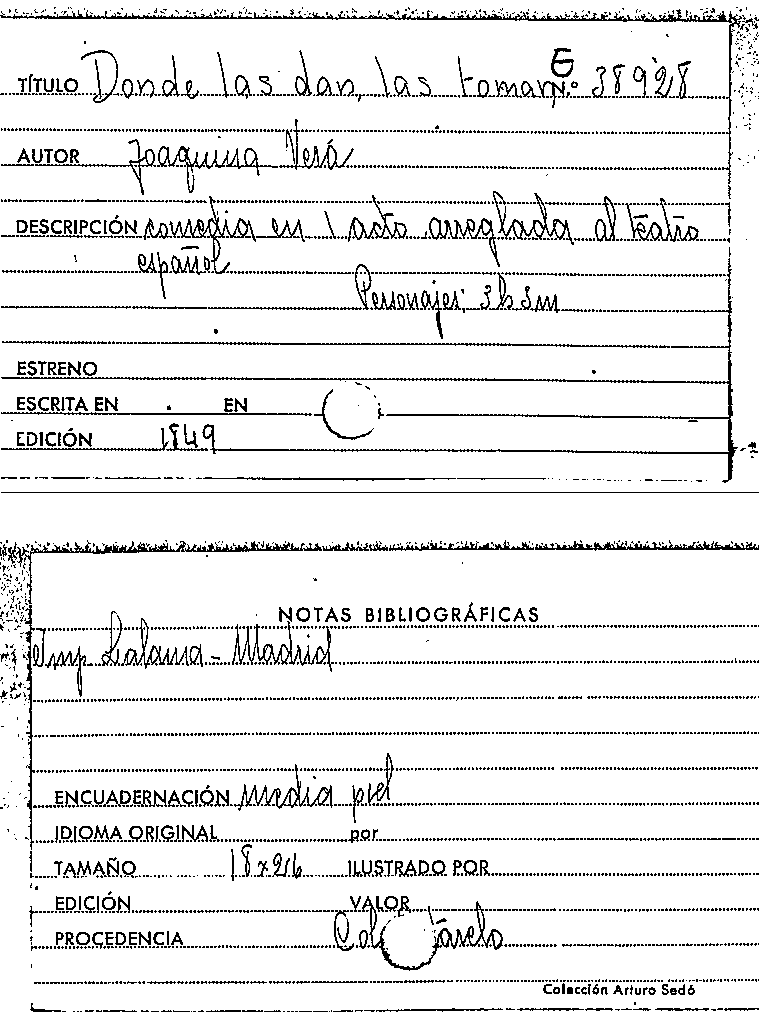 G
TÍTULO Donde las dan, las toman N.º 38928
AUTOR Joaquina Vera
DESCRIPCIÓN comedia en 1 acto arreglada al teatro
español
Personajes: 3h 3m
ESTRENO
ESCRITA EN EN
EDICIÓN 1849
NOTAS BIBLIOGRÁFICAS
Imp Lalama - Madrid
ENCUADERNACIÓN media piel
IDIOMA ORIGINAL por
TAMAÑO 18x26 ILUSTRADO POR
EDICIÓN VALOR
PROCEDENCIA Col
Colección Arturo Sedó